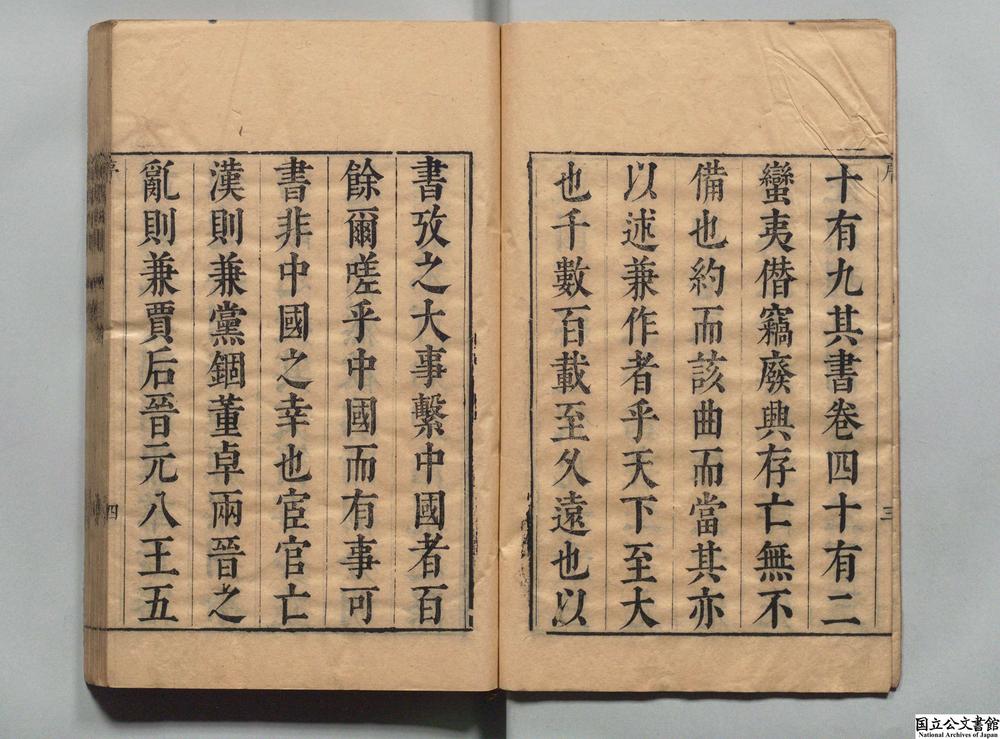 十有九其書卷四十有二
蠻夷僭竊廢興存亡無不
備也約而該曲而當其亦
以述兼作者乎天下至大
也千數百載至久遠也以
書攷之大事繫中國者百
餘爾嗟乎中國而有事可
書非中國之幸也宦官亡
漢則兼黨錮董卓兩晉之
亂則兼賈后晉元八王五
序
三
四
国立公文書館
National Archives of Japan